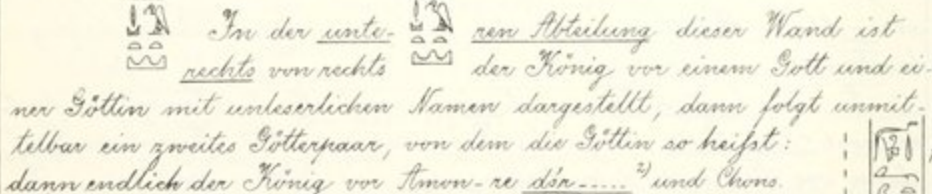 In der unte- ren Abteilung dieser Wand ist
rechts von rechts der König vor einem Gott und ei-
ner Göttin mit unleserlichen Namen dargestellt, dann folgt unmit-
telbar ein zweites Götterpaar, von dem die Göttin so heißt:
dann endlich der König vor Amon-re dśr----- ²⁾ und Chons.